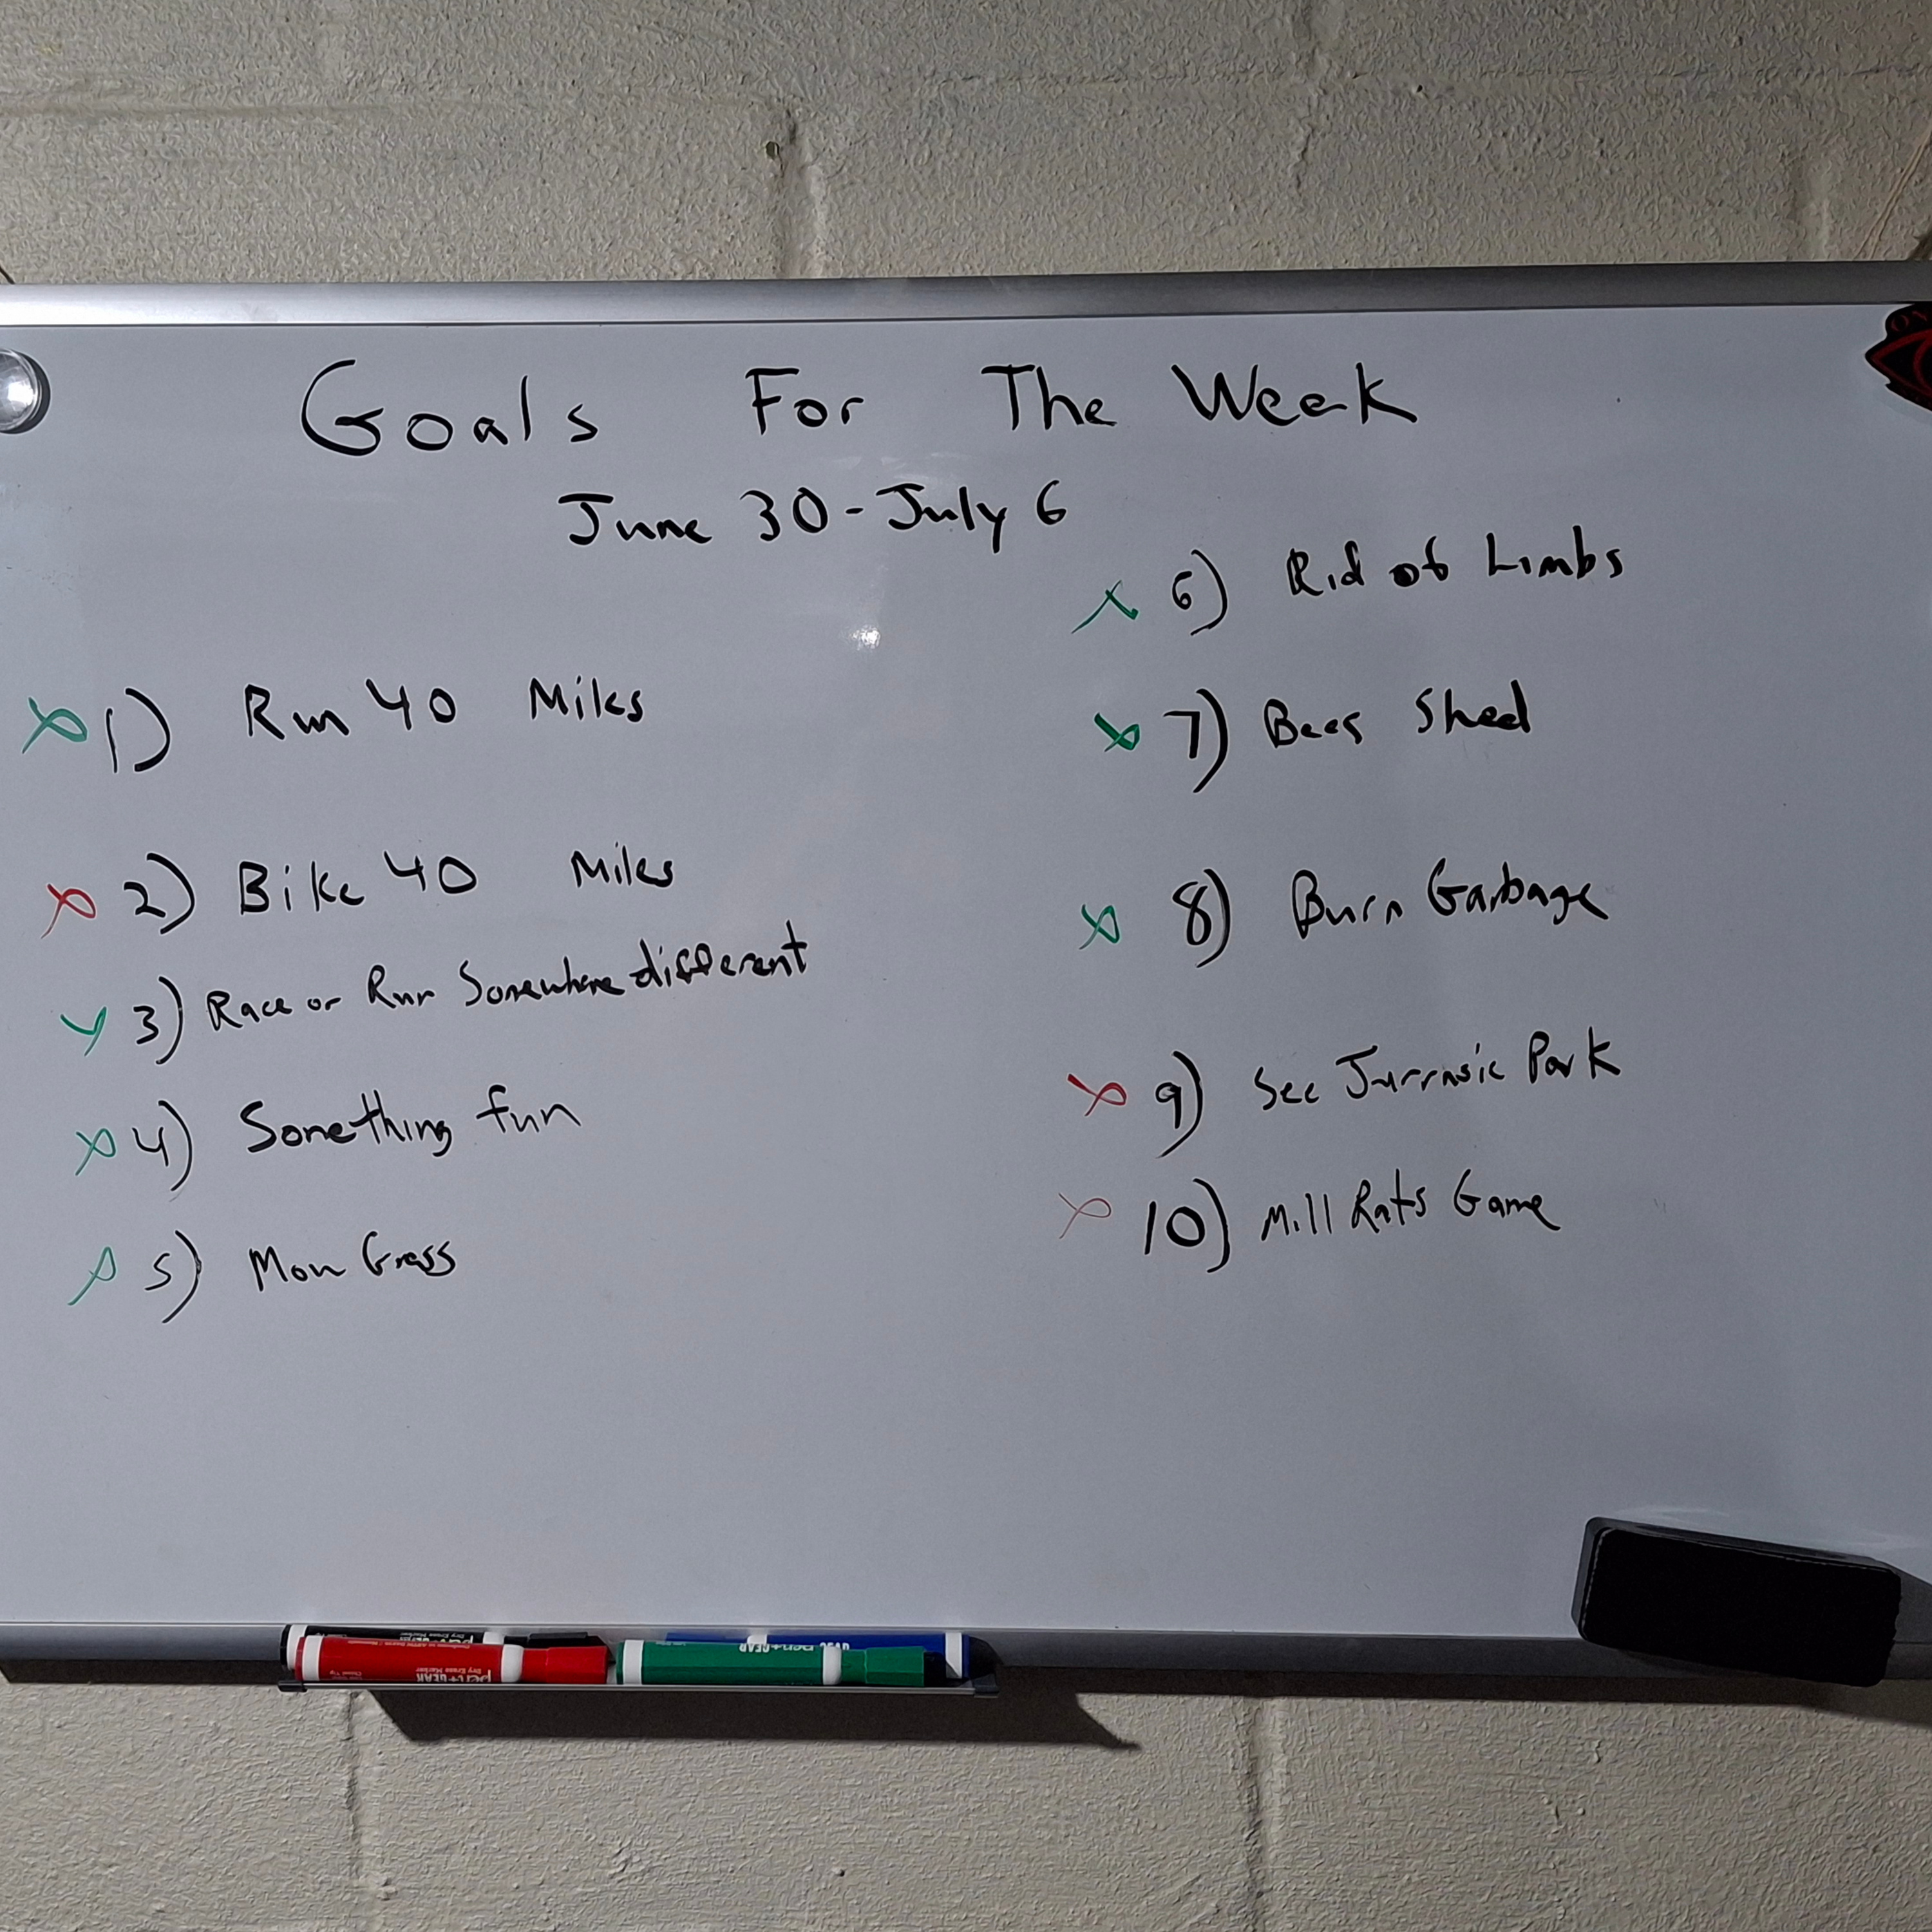 Goals For The Week
June 30 - July 6
1) Run 40 Miles
2) Bike 40 Miles
3) Race or Run Somewhere different
4) Something fun
5) Mow Grass
6) Rid of Limbs
7) Bees Shed
8) Burn Garbage
9) See Jurrasic Park
10) Mill Rats Game
pen+GEAR
Dry Erase Marker
pen+GEAR
Dry Erase Marker
pen+GEAR